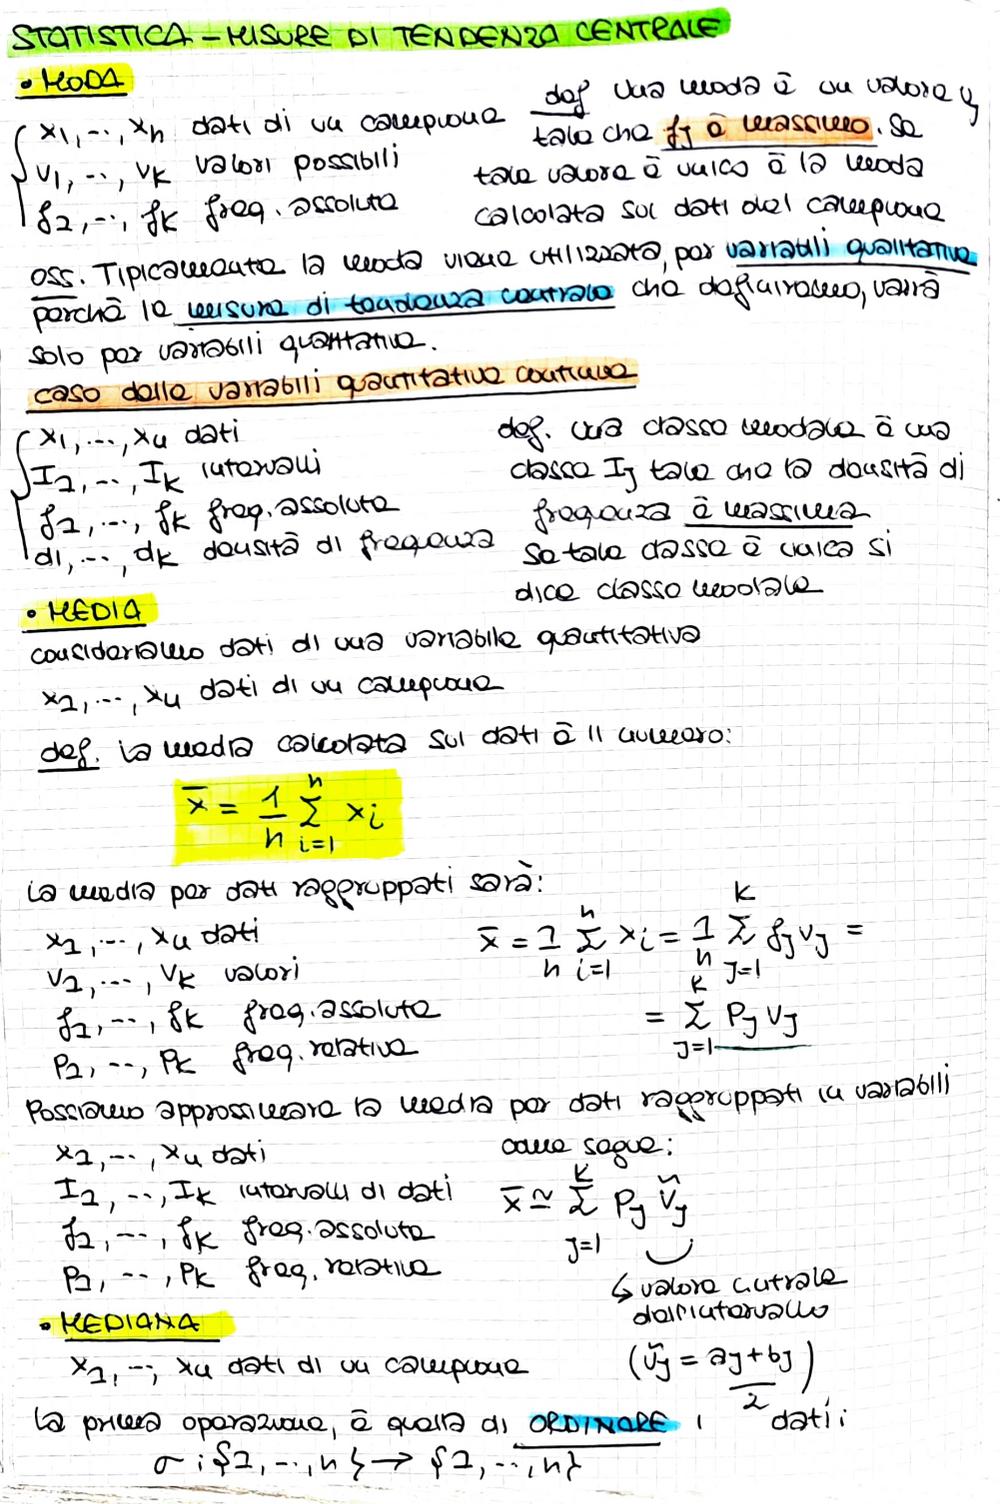 STATISTICA - MISURE DI TENDENZA CENTRALE
• MODA
x1, ..., xn dati di un campione
v1, ..., vk valori possibili
f1, ..., fk freq. assolute
def una moda è un valore vj
tale che fj è massimo. Se
tale valore è unico è la moda
calcolata sui dati del campione
oss. Tipicamente la moda viene utilizzata, per variabili qualitative
perché le misure di tendenza centrale che definiremo, varrà
solo per variabili quantitative.
caso delle variabili quantitative continue
x1, ..., xn dati
I1, ..., Ik intervalli
f1, ..., fk freq. assolute
d1, ..., dk densità di frequenza
def. una classe modale è una
classe Ij tale che la densità di
frequenza è massima
Se tale classe è unica si
dice classe modale
• MEDIA
consideriamo dati di una variabile quantitativa
x1, ..., xn dati di un campione
def. la media calcolata sui dati è il numero:
x̄ = 1/n Σ_{i=1}^{n} xi
la media per dati raggruppati sarà:
x1, ..., xn dati
v1, ..., vk valori
f1, ..., fk freq. assolute
P1, ..., Pk freq. relative
x̄ = 1/n Σ_{i=1}^{n} xi = 1/n Σ_{J=1}^{K} fj vj =
= Σ_{J=1}^{K} Pj vj
Possiamo approssimare la media per dati raggruppati in variabili
come segue:
x1, ..., xn dati
I1, ..., Ik intervalli di dati
f1, ..., fk freq. assolute
P1, ..., Pk freq. relative
x̄ ≃ Σ_{J=1}^{K} Pj ṽj
↳ valore centrale
dell'intervallo
(ṽj = aj + bj / 2)
• MEDIANA
x1, ..., xn dati di un campione
la prima operazione, è quella di ORDINARE i dati:
σ : {1, ..., n} → {1, ..., n}